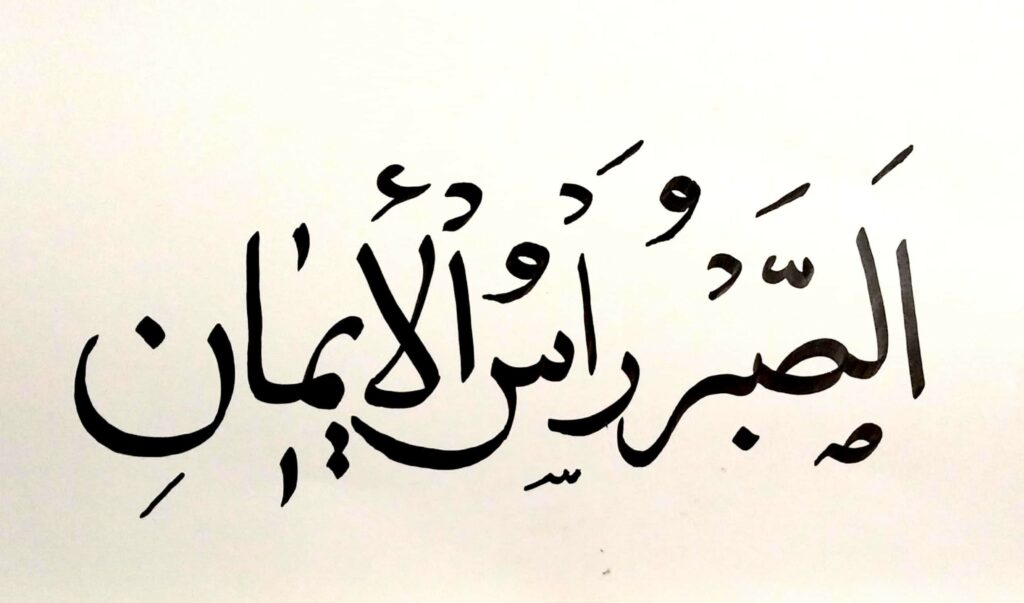 اَلصَّبْرُ رَاْسُ الْأيمانِ